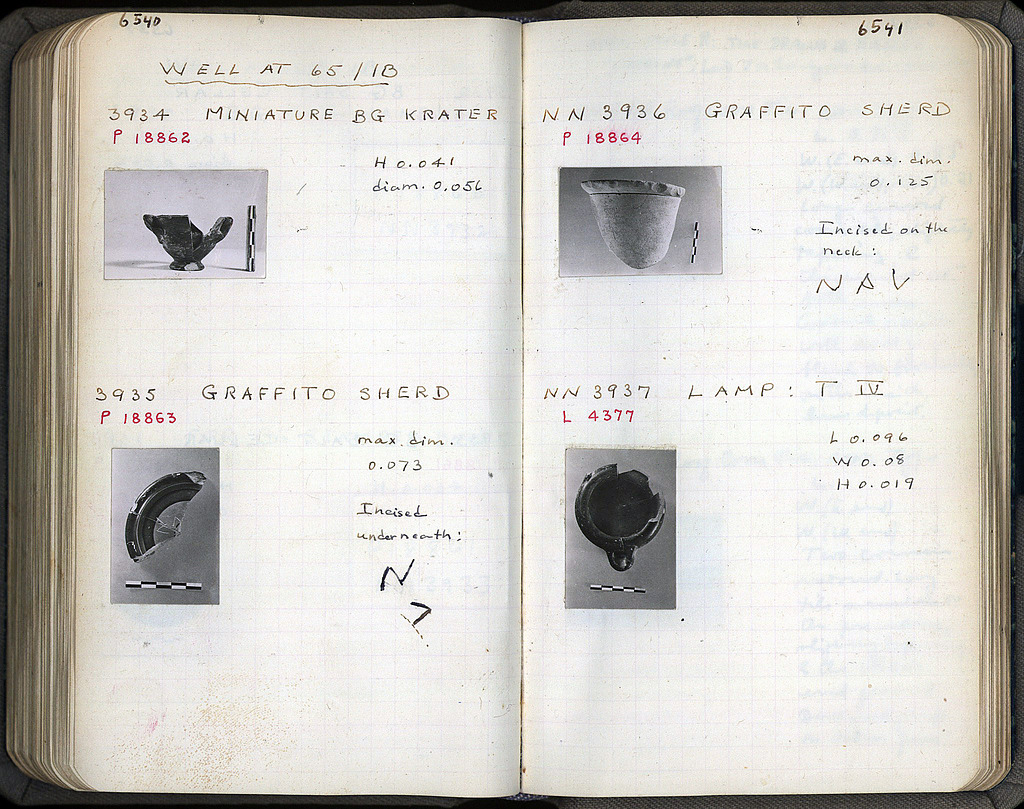 6540
WELL AT 65/IB
3934 MINIATURE BG KRATER
P 18862
H 0.041
diam. 0.056
3935 GRAFFITO SHERD
P 18863
max. dim.
0.073
Incised
underneath:
N
6541
NN 3936 GRAFFITO SHERD
P 18864
max. dim.
0.125
Incised on the
neck:
N A V
NN 3937 LAMP: T IV
L 4377
L 0.096
W 0.08
H 0.019